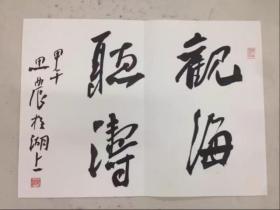 觀海
聽濤
甲午
思農於湖上